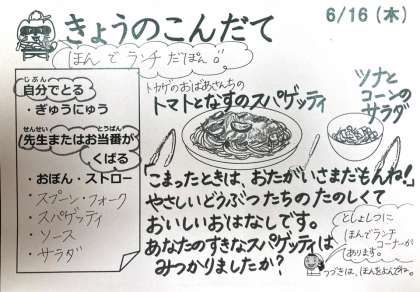 きょうのこんだて
6/16(木)
ほんでランチだぽん。
じぶん
自分でとる
・ぎゅうにゅう
せんせい とうばん
先生またはお当番が
くばる
・おぼん・ストロー
・スプーン・フォーク
・スパゲッティ
・ソース
・サラダ
トカゲのおばあさんちの
トマトとなすのスパゲッティ
ツナと
コーンの
サラダ
「こまったときは、おたがいさまだもんね!」
やさしいどうぶつたちのたのしくて
おいしいおはなしです。
あなたのすきなスパゲッティは
みつかりましたか?
としょしつに
ほんでランチ
コーナーが
あります。
つづきは、ほんをよんでね。